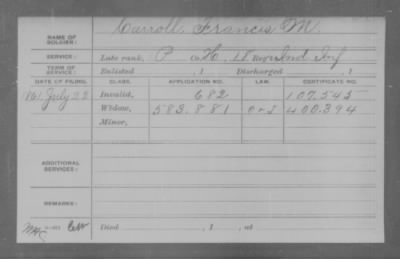 NAME OF SOLDIER: Carroll, Francis M.
SERVICE: Late rank, P Co. H, 18 Reg't Ind Inf
TERM OF SERVICE: Enlisted , 1 Discharged , 1
DATE OF FILING. CLASS. APPLICATION NO. LAW. CERTIFICATE NO.
July 22 Invalid, 682 107.545
Widow, 583.881 400.394
Minor,
ADDITIONAL SERVICES:
REMARKS:
Died , 1 , at